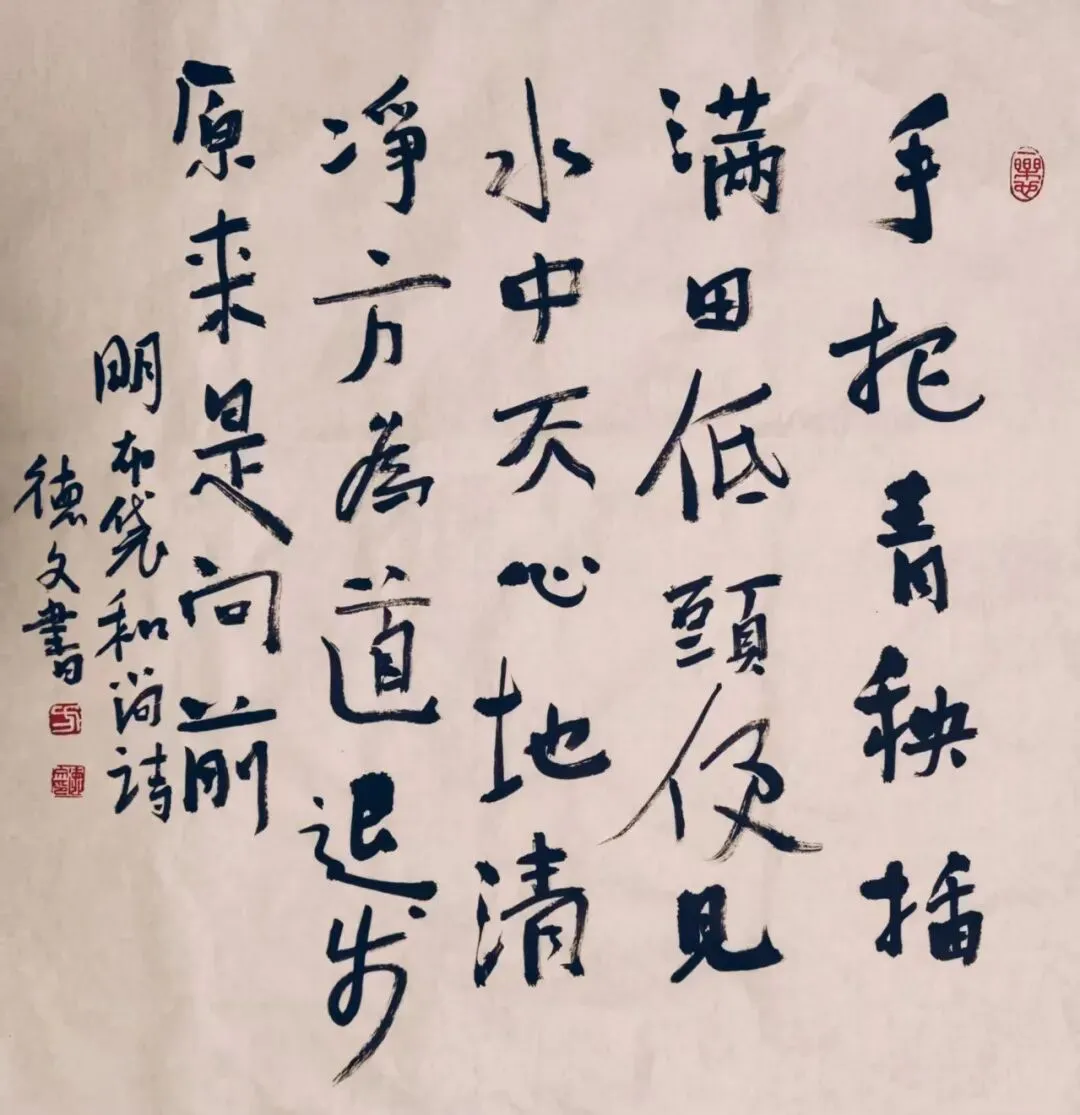 手把青秧插
满田低頭便見
水中天心地清
淨方為道退步
原来是向前
明布袋和尚诗
德文書